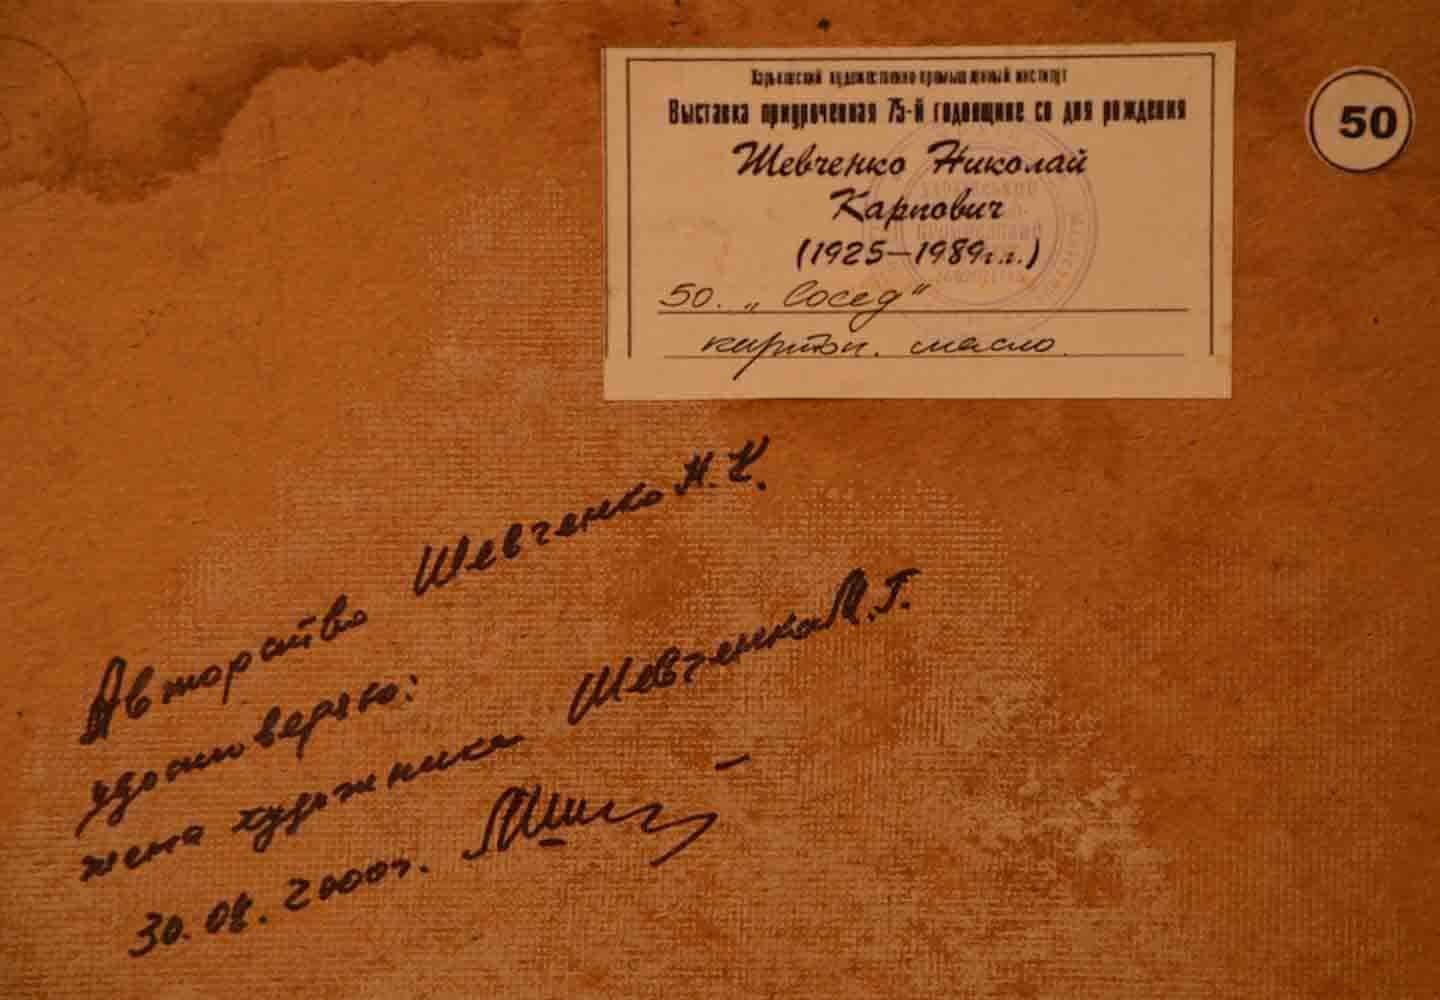 Харьковский художественно-промышленный институт
Выставка приуроченная 75-й годовщине со дня рождения
Шевченко Николай
Карпович
(1925–1989г.г.)
50. „Сосед"
картон. масло.
50
Авторство Шевченко Н.К.
удостоверяю:
жена художника Шевченко М.Г.
30.08.2000г.